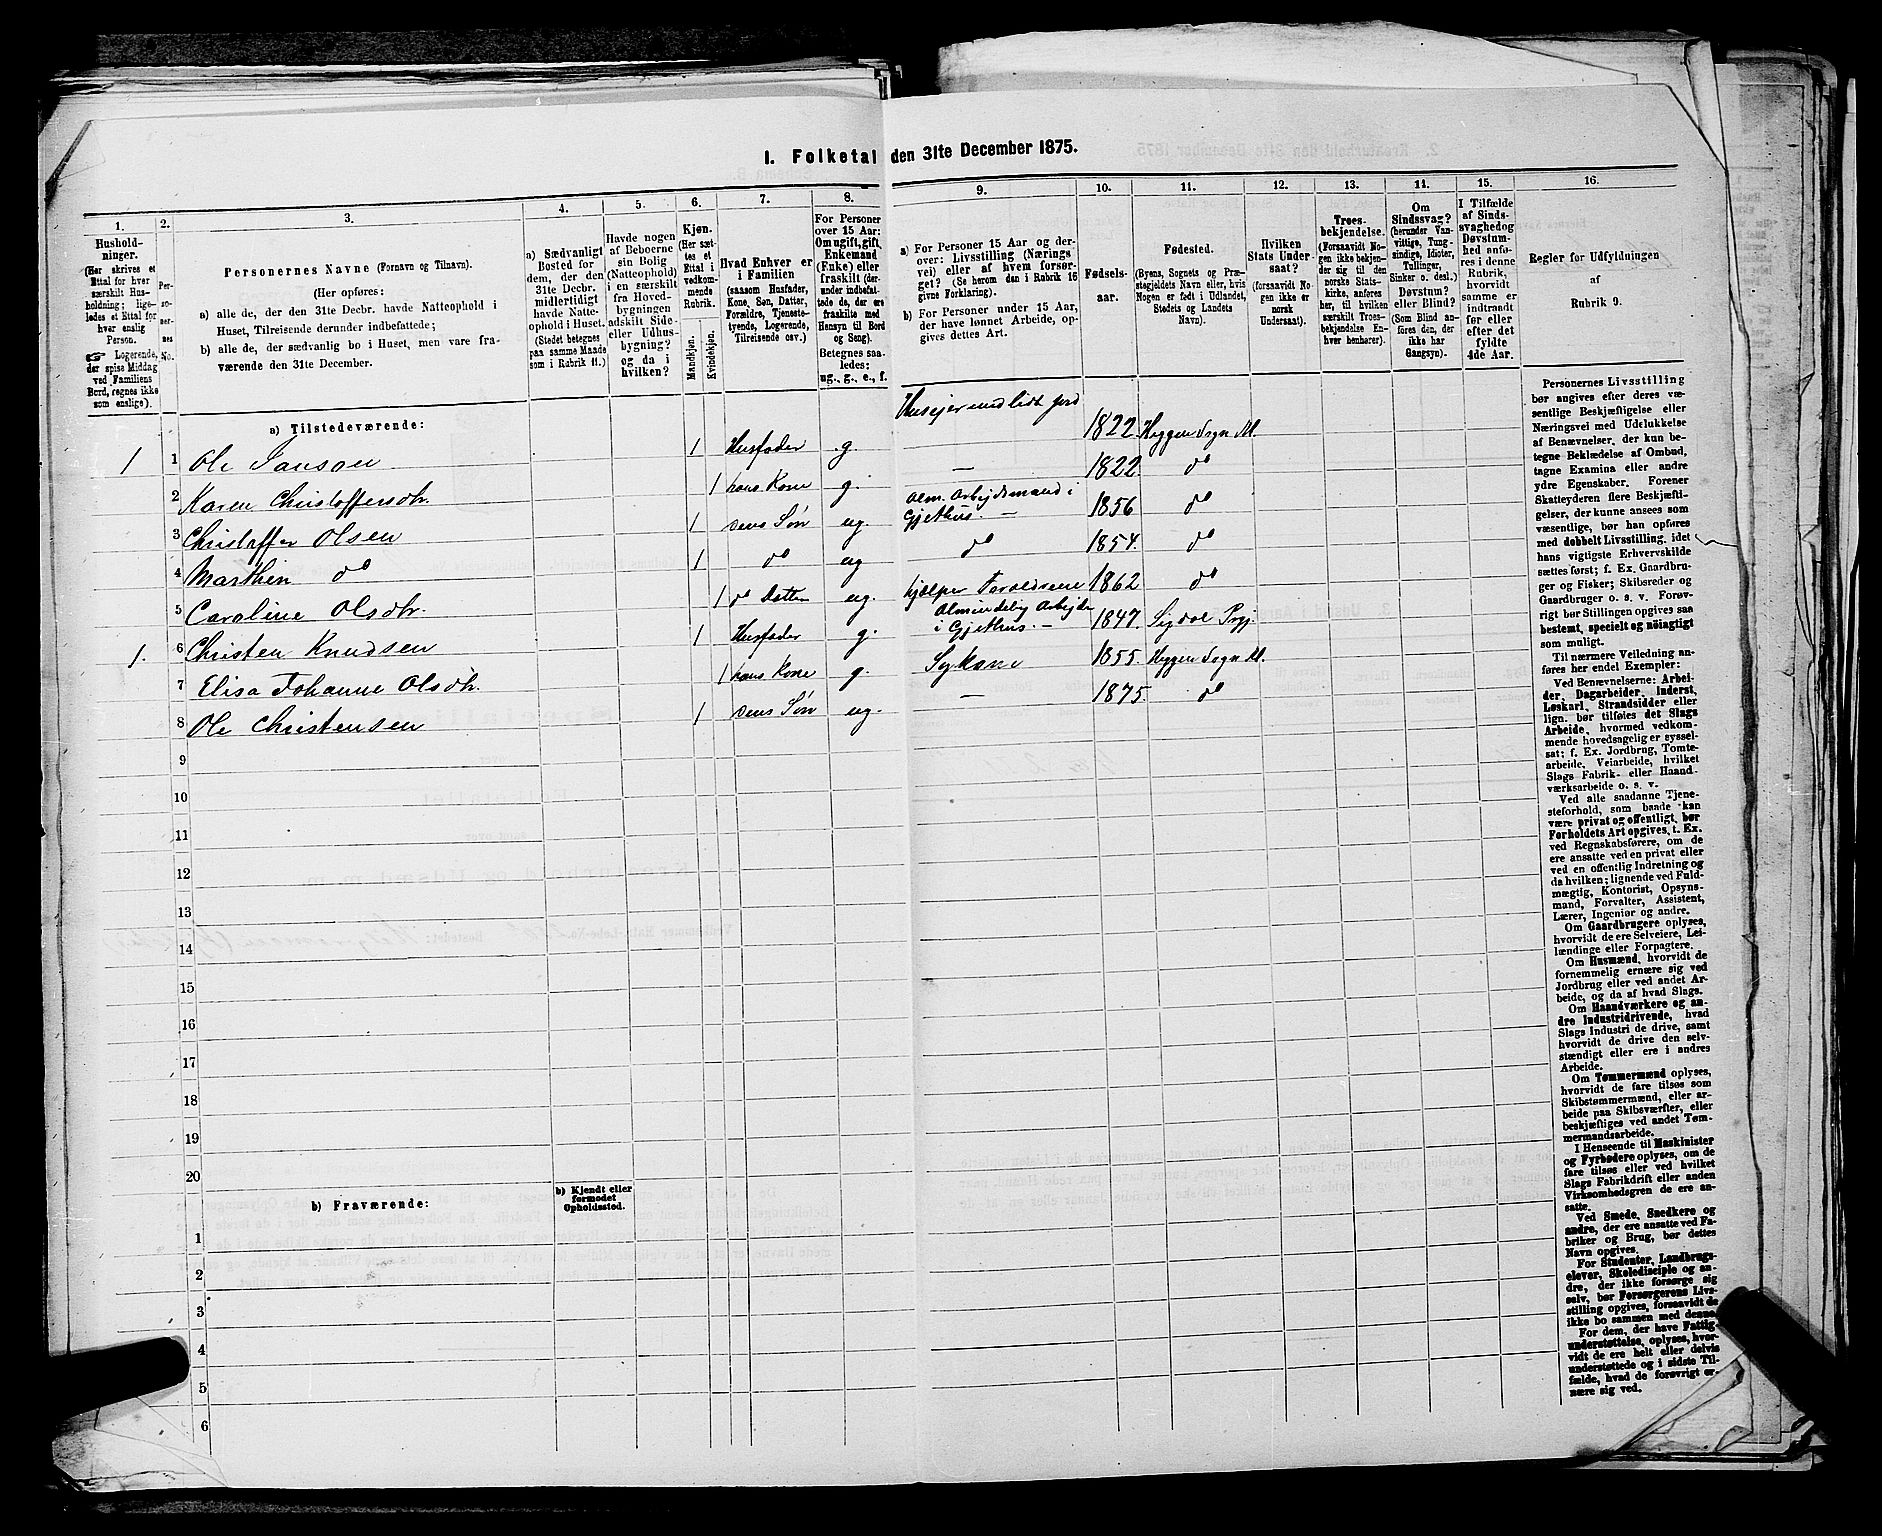 I. Folketal den 31te December 1875.
1. 2. 3. 4. 5. 6. 7. 8. 9. 10. 11. 12. 13. 14. 15. 16.
Husholdninger.
(Her skrives et
Ettal for hver
særskilt Husholdning;
ligeledes
et Ettal for
hver enslig
Person.
☞ Logerende,
der spise Middag
ved Familiens
Bord, regnes ikke
som enslige).
Personernes No.
Personernes Navne (Fornavn og Tilnavn).
(Her opføres:
a) alle de, der den 31te Decbr. havde Natteophold i
Huset, Tilreisende derunder indbefattede;
b) alle de, der sædvanlig bo i Huset, men vare fraværende
den 31te December.
a) Sædvanligt
Bosted for
dem, der den
31te Decbr.
midlertidigt
havde Natteophold
i Huset.
(Stedet betegnes
paa samme Maade
som i Rubrik 11.)
Havde nogen
af Beboerne
sin Bolig
(Natteophold)
i en særskilt
fra Hovedbygningen
adskilt Side-
eller Udhusbygning?
og da i
hvilken?
Kjøn.
(Her sættes
et
Ettal i
vedkommende
Rubrik.
Mandkjøn.
Kvindekjøn.
Hvad Enhver er
i Familien
(saasom Husfader,
Kone, Søn, Datter,
Forældre, Tjenestetyende,
Logerende,
Tilreisende osv.)
For Personer
over 15 Aar:
Om ugift, gift,
Enkemand
(Enke) eller
fraskilt (derunder
indbefattede
de, der ere
fraskilte med
Hensyn til Bord
og Seng).
Betegnes saaledes:
ug., g., e., f.
a) For Personer 15 Aar og derover:
Livsstilling (Næringsvei)
eller af hvem forsørget?
(Se herom den i Rubrik 16
givne Forklaring).
b) For Personer under 15 Aar,
der have lønnet Arbeide, opgives
dettes Art.
Fødselsaar.
Fødested.
(Byens, Sognets og Præstegjeldets
Navn eller, hvis
Nogen er født i Udlandet,
Stedets og Landets
Navn).
Hvilken
Stats Undersaat?
(forsaavidt Nogen
ikke er
norsk
Undersaat).
Troesbekjendelse.
(Forsaavidt Nogen
ikke bekjender
sig til den
norske Statskirke,
anføres
her, til hvilken
særskilt Troesbekjendelse
Enhver
henhører).
Om
Sindssvag?
(herunder Vanvittige,
Tungsindige,
Idioter,
Tullinger,
Sinker o. desl.)
Døvstum?
eller Blind?
(Som Blind anføres
den, der
ikke har
Gangsyn).
I Tilfælde
af Sindssvaghed
og
Døvstumhed
anføres
i denne
Rubrik,
hvorvidt
samme er
indtraadt
før eller
efter det
fyldte
4de Aar.
Regler for Udfyldningen
af
Rubrik 9.
a) Tilstedeværende:
1 1 Ole Jansen 1 Husfader g. Huseier med lidt jord 1822. Heggen Sogn M.
2 Karen Christoffersdtr. 1 hans Kone g. — 1822. do
3 Christoffer Olsen 1 deres Søn ug. Alm. Arbejdsmand i
Gjethus. — 1856 do
4 Marthin do 1 do ug do 1854. do
5 Caroline Olsdtr. 1 do Datter ug. hjælper Forældrene 1862 do
1. 6 Christen Knudsen 1 Husfader g. Almindelig Arbejder
i Gjethus. — 1847. Sigdal Prgj.
7 Elisa Johanne Olsdtr. 1 hans Kone g. Sykone 1855. Heggen Sogn M.
8 Ole Christensen 1 deres Søn ug. — 1875. do
9
10
11
12
13
14
15
16
17
18
19
20
b) Fraværende:
b) Kjendt eller
formodet
Opholdssted.
1
2
3
4
5
6
Personernes Livsstilling
bør angives efter deres væsentlige
Beskjæftigelse eller
Næringsvei med Udelukkelse
af Benævnelser, der kun betegne
Beklædelse af Ombud,
tagne Examina eller andre
ydre Egenskaber. Forener
Skatteyderen flere Beskjæftigelser,
der kunne ansees som
væsentlige, bør han opføres
med dobbelt Livsstilling, idet
hans vigtigste Erhvervskilde
sættes først; f. Ex. Gaardbruger
og Fisker; Skibsreder og
Gaardbruger o. s. v. Forøvrigt
bør Stillingen opgives saa
bestemt, specielt og nøiagtigt
som muligt.
Til nærmere Veiledning anføres
her endel Exempler:
Ved Benævnelserne: Arbeider,
Dagarbeider, Inderst,
Løskarl, Strandsidder eller
lign. bør tilføies det Slags
Arbeide, hvormed vedkommende
hovedsagelig er sysselsat;
f. Ex. Jordbrug, Tomtearbeide,
Veiarbeide, hvilket
Slags Fabrik- eller Haandværksarbeide
o. s. v.
Ved alle saadanne Tjenesteforhold,
som baade kan
være privat og offentligt, bør
Forholdets Art opgives, t. Ex.
ved Regnskabsførere, om de
ere ansatte ved en privat eller
ved en offentlig Indretning og
da hvilken; lignende ved Fuldmægtig,
Kontorist, Opsynsmand,
Forvalter, Assistent,
Lærer, Ingeniør og andre.
Om Gaardbrugere oplyses,
hvorvidt de ere Selveiere, Leilændinge
eller Forpagtere.
Om Husmænd, hvorvidt de
fornemmelig ernære sig ved
Jordbrug eller ved andet Arbeide,
og da af hvad Slags.
Om Haandværkere og andre
Industridrivende, hvad
Slags Industri de drive, samt
hvorvidt de drive den selvstændigt
eller ere i andres
Arbeide.
Om Tømmermænd oplyses,
hvorvidt de fare tilsøs som
Skibstømmermænd, eller arbeide
paa Skibsværfter, eller
beskjæftiges ved andet Tømmermandsarbeide.
I Henseende til Maskinister
og Fyrbødere oplyses, om de
fare tilsøs eller ved hvilket
Slags Fabrikdrift eller anden
Virksomhedsgren de ere ansatte.
Ved Smede, Snedkere og
andre, der ere ansatte ved Fabriker
og Brug, bør dettes
Navn opgives.
For Studenter, Landbrugselever,
Skoledisciple og andre,
der ikke forsørge sig
selv, bør Forsørgerens Livsstilling
opgives, forsaavidt de
ikke bo sammen med denne.
For dem, der have Fattigunderstøttelse,
oplyses, hvorvidt
de ere helt eller delvis
understøttede og i sidste Tilfælde,
hvad de forøvrigt ernære
sig ved.